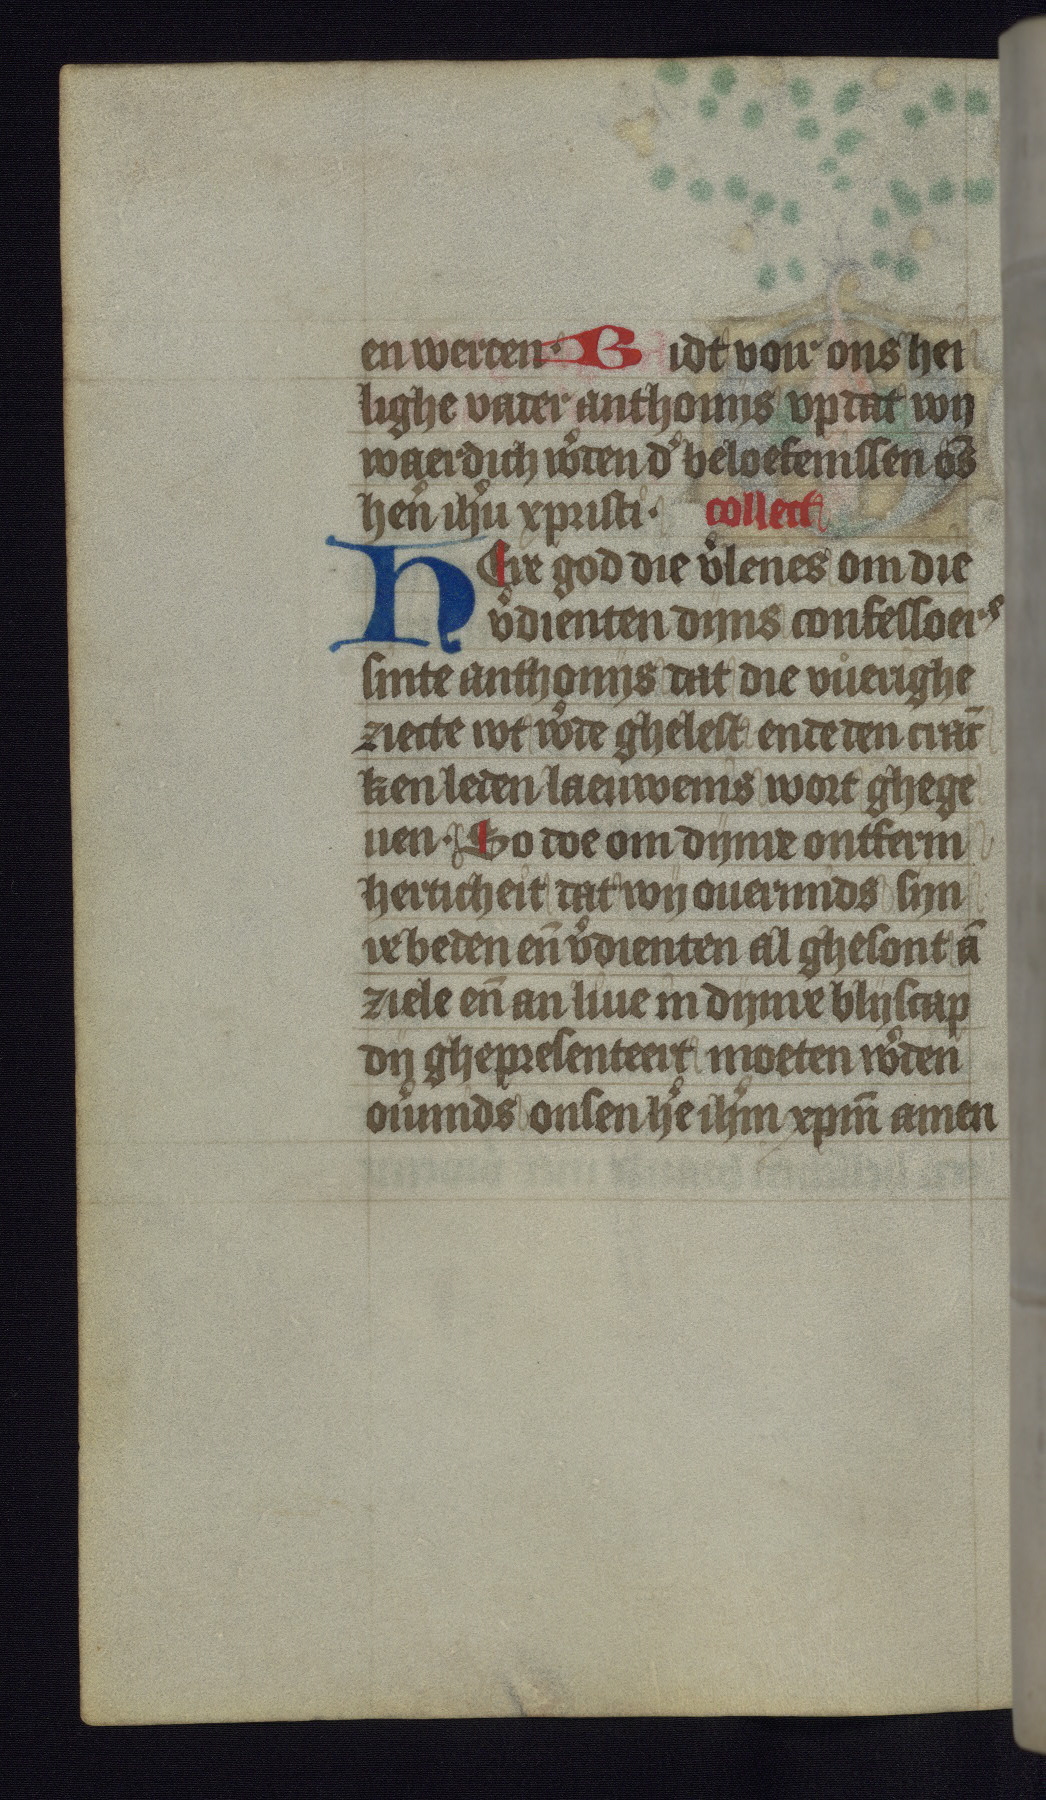 en werden· Bidt voir ons hei
lighe vader anthonijs vp dat wij
waerdich w̉den d̉ beloefenissen on̄s
hen̉ ih̉u xpristi· collect̄
HEre god die v̉lenes om die
v̉dienten dijns confessoers
sinte anthonijs dat die vuerighe
ziecte wt w̉de ghelest ende den cran̄
ken leden lauwenis wort ghege
uen· So doe om dijnre ontferm
herticheit dat wij ouermids sijn
re beden en̄ v̉dienten al ghesont ā
ziele en̄ an liue in dijnre blijscap
dij ghepresenteert moeten w̉den
oủmids onsen hẻ ih̉m xpm̄ amen